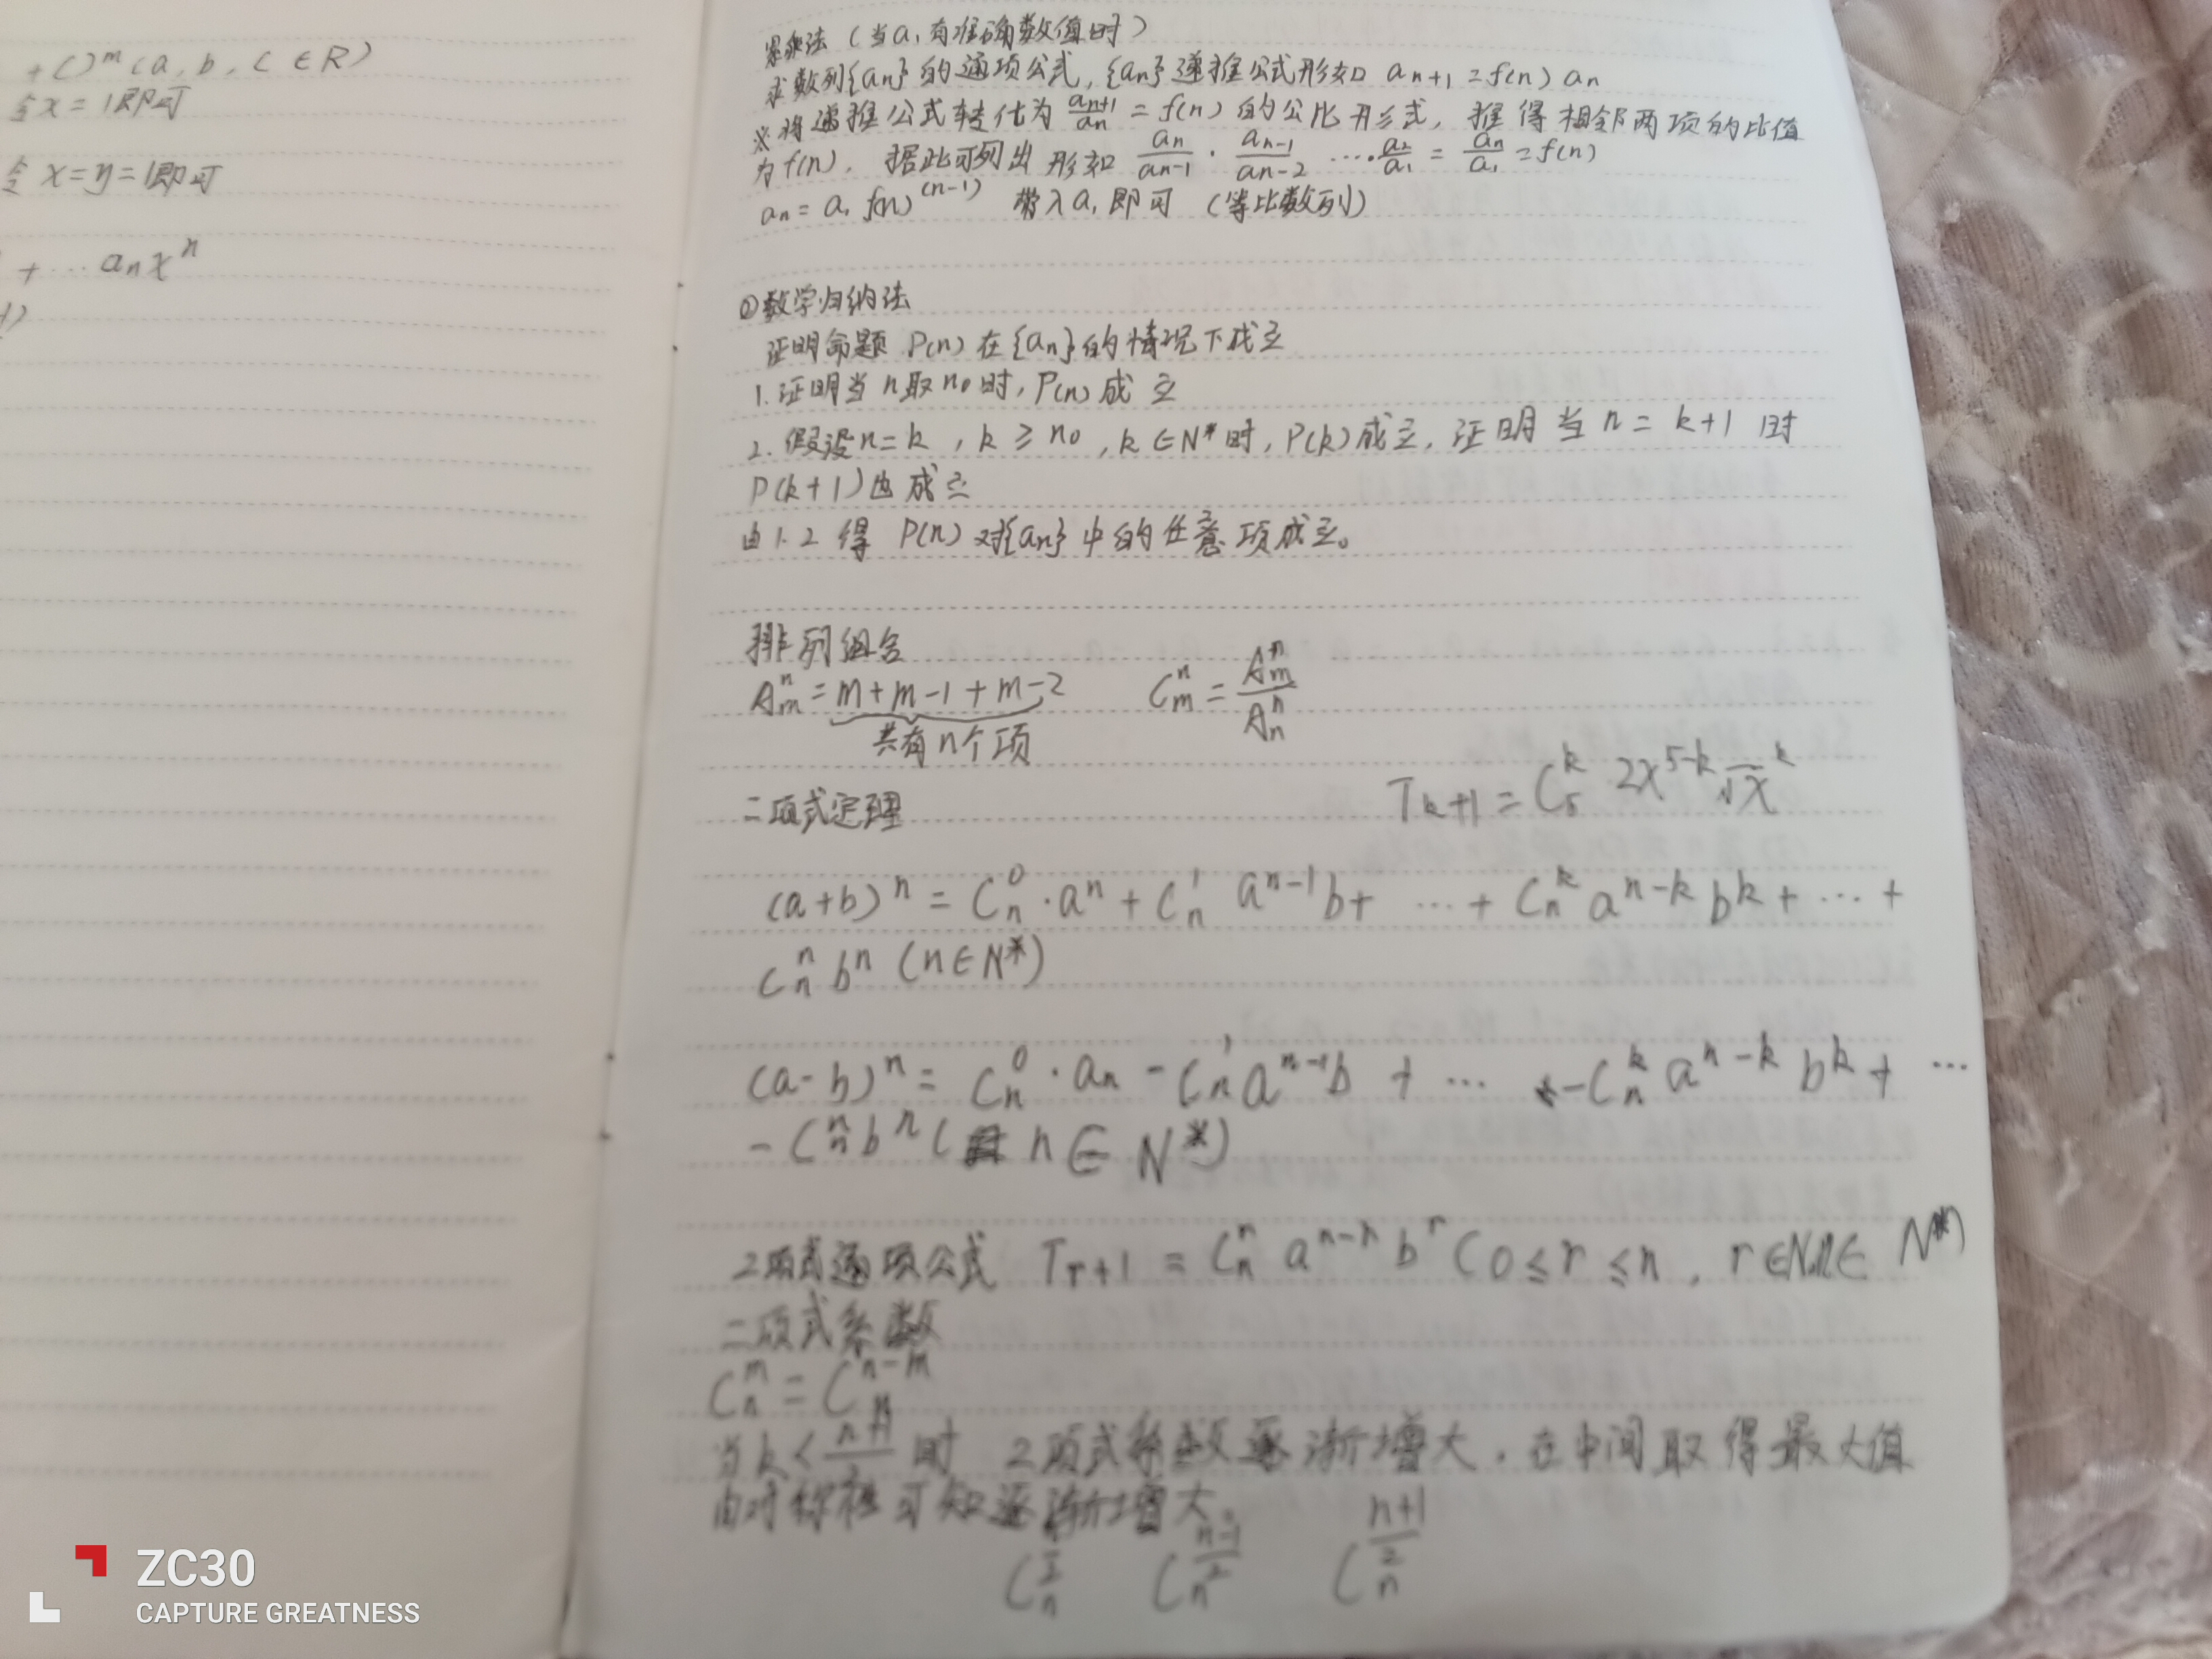 +c)^m (a, b, c ∈ R)
令x=1即可
令 x=y=1即可
+ ⋯ a_n x^n
累乘法 (当a₁有准确数值时)
求数列{a_n}的通项公式, {a_n}递推公式形如 a_{n+1} = f(n) a_n
※将递推公式转化为 a_{n+1}/a_n = f(n) 的公比形式, 推得相邻两项的比值
为f(n), 据此可列出 形如 a_n/a_{n-1} · a_{n-1}/a_{n-2} ⋯ a_2/a_1 = a_n/a_1 = f(n)
a_n = a₁ f(n)^{(n-1)} 带入a₁即可 (等比数列)
①数学归纳法
证明命题 P(n) 在{a_n}的情况下成立
1. 证明当 n取n₀时, P(n) 成立
2. 假设n=k, k≥n₀, k∈N*时, P(k)成立, 证明当 n = k+1 时
P(k+1)也成立
由1. 2 得 P(n) 对{a_n}中的任意项成立。
排列组合
A_m^n = m+m-1+m-2 C_m^n = A_m^n/A_n^n
共有n个项
二项式定理 T_{k+1} = C_5^k 2x^{5-k} √x^k
(a+b)^n = C_n^0 · a^n + C_n^1 a^{n-1}b + ⋯ + C_n^k a^{n-k} b^k + ⋯ +
C_n^n b^n (n∈N*)
(a-b)^n = C_n^0 · a_n - C_n^1 a^{n-1}b + ⋯ -C_n^k a^{n-k} b^k + ⋯
- C_n^n b^n ( n ∈ N*)
2项式通项公式 T_{r+1} = C_n^n a^{n-n} b^r (0≤r≤n, r∈N,n∈ N*)
二项式系数
C_n^m = C_n^{n-m}
当k< (n+1)/2 时 2项式系数逐渐增大, 在中间取得最大值
由对称性可知逐渐增大
C_n^{n/2} C_n^{(n-1)/2} C_n^{(n+1)/2}
ZC30
CAPTURE GREATNESS